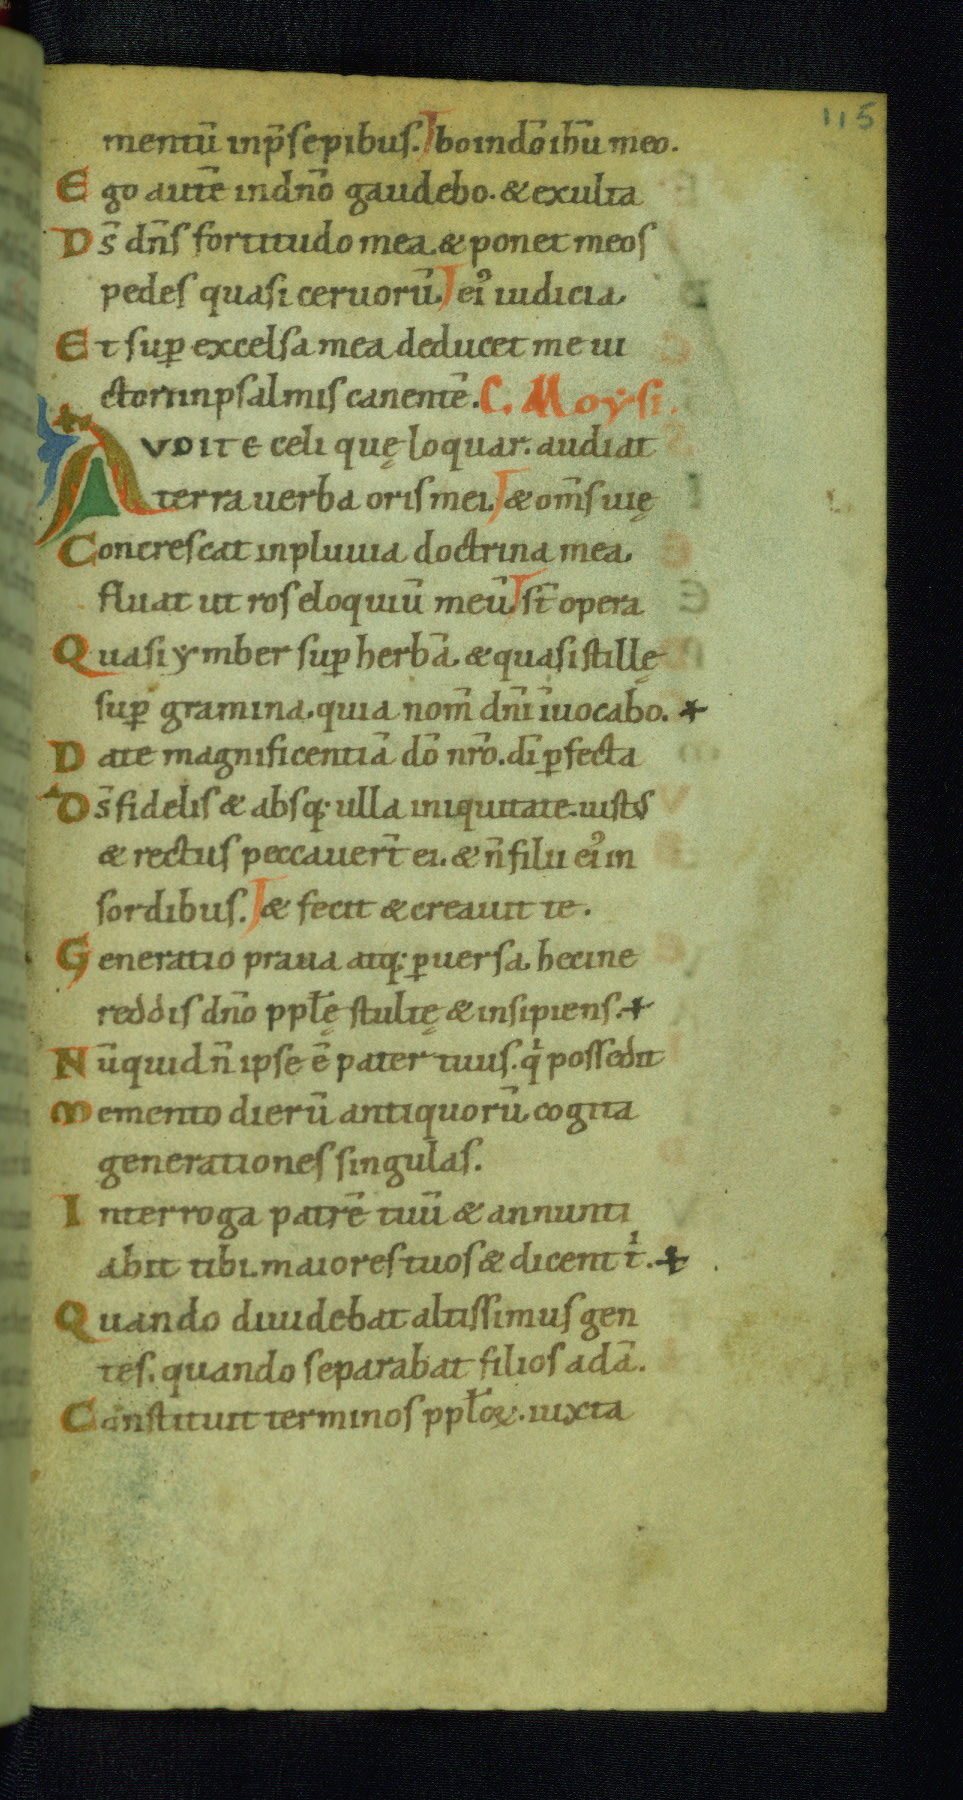 115
mentū inp̄sepibus. boindō ihū meo.
Ego autē indnō gaudebo. & exulta
Ds̄ dn̄s fortitudo mea. & ponet meos
pedes quasi ceruorū. ei᾿ iudicia.
Et sup̱ excelsa mea deducet me ui
ctor inpsalmis canentē. C. Moẏsi.
AVDITE celi quę loquar. audiat
terra uerba oris mei. & om̄s uię
Concrescat inpluuia doctrina mea.
fluat ut ros eloquiū meū. st̄ opera
Quasi ẏmber sup̱ herbā. & quasi stillę
sup̱ gramina. quia nom̄ dn̄i īuocabo.
Date magnificentiā dō nr̄o. di ̄p̱fecta
Ds̄ fidelis & absq; ulla iniquitate. iusts
& rectus peccauer̄t ei. & n̄ filii ei᾿ in
sordibus. & fecit & creauit te.
Generatio praua atq; p̱uersa. hecine
reddis dnō pplę stultę & insipiens.
Nūquid n̄ ipse ē pater tuus. qi possedit
Memento dierū antiquorū cogita
generationes singulas.
Interroga patrē tuū & annunti
abit tibi. maiores tuos & dicent t.
Quando diuidebat altissimus gen
tes. quando separabat filios adā.
Constituit terminos pploꝝ. iuxta